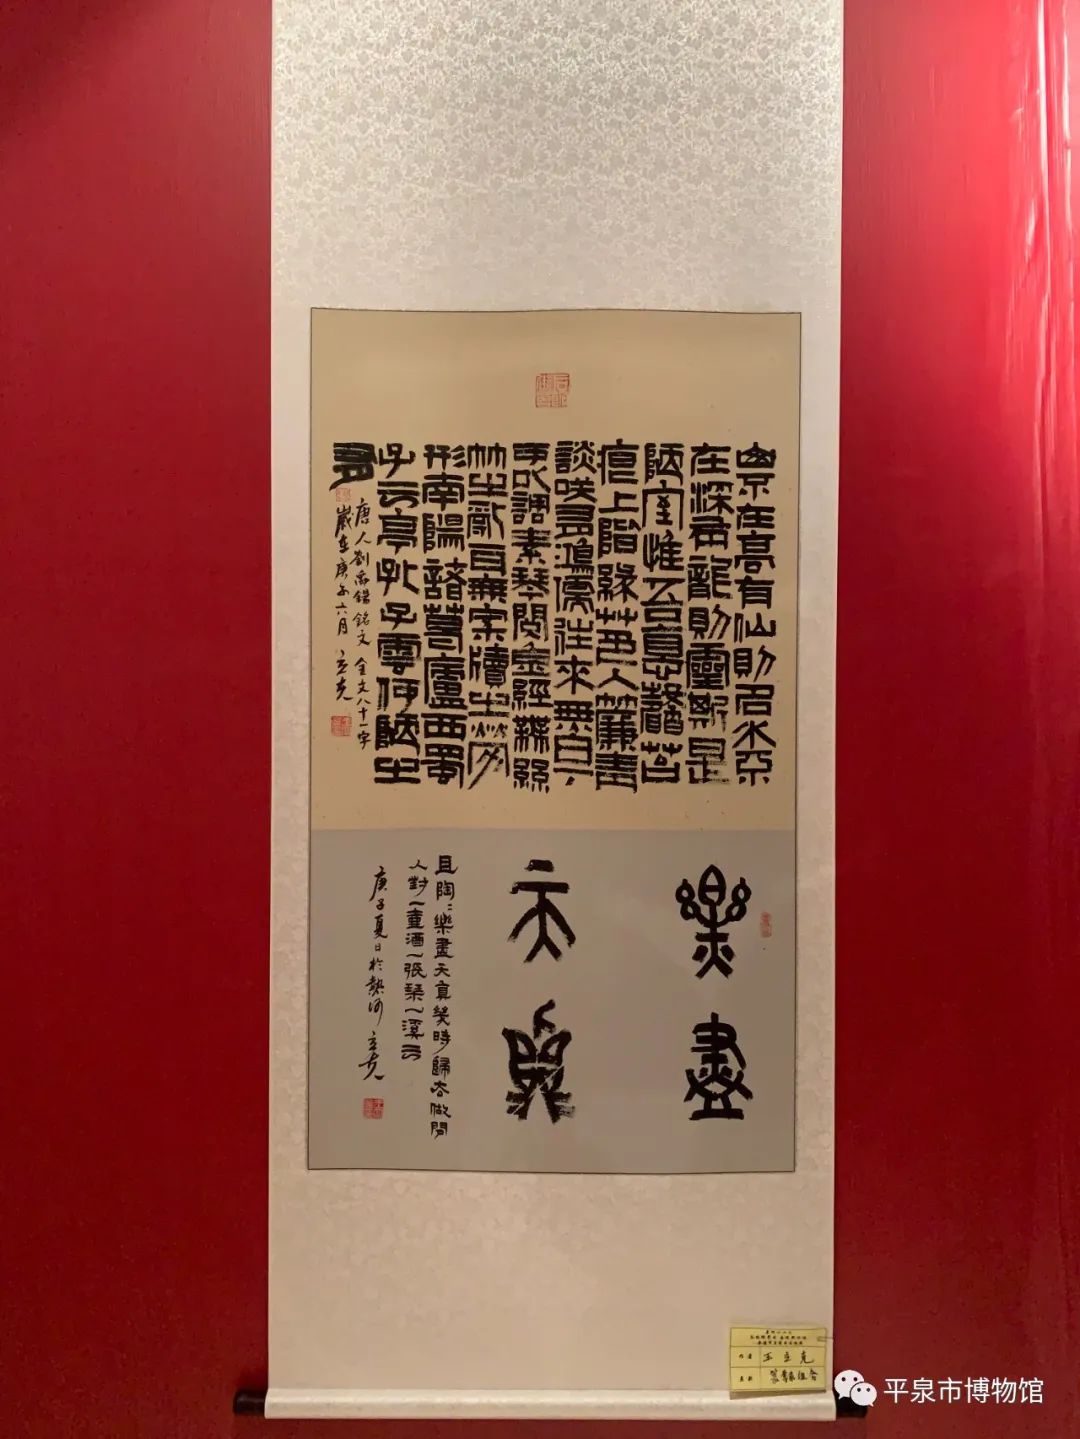 山不在高有仙則名水不
在深有龍則靈斯是
陋室惟吾悳馨苔
痕上階綠艸色入簾青
談笑有鴻儒往來無白丁
可以調素琴閱金經無絲
竹之亂耳無案牘之勞
形南陽諸葛廬西蜀
子云亭孔子雲何陋之
有
唐人劉禹錫銘文 金文八十一字
歲在庚子六月 立克
樂盡
天真
且陶〻樂盡天真幾時歸去做閒
人對一壺酒一張琴一溪云
庚子夏日於熱河 立克
作者 王立克
平泉市博物馆